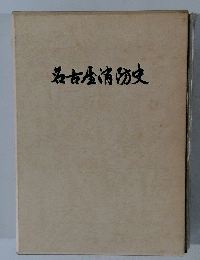 名古屋消防史